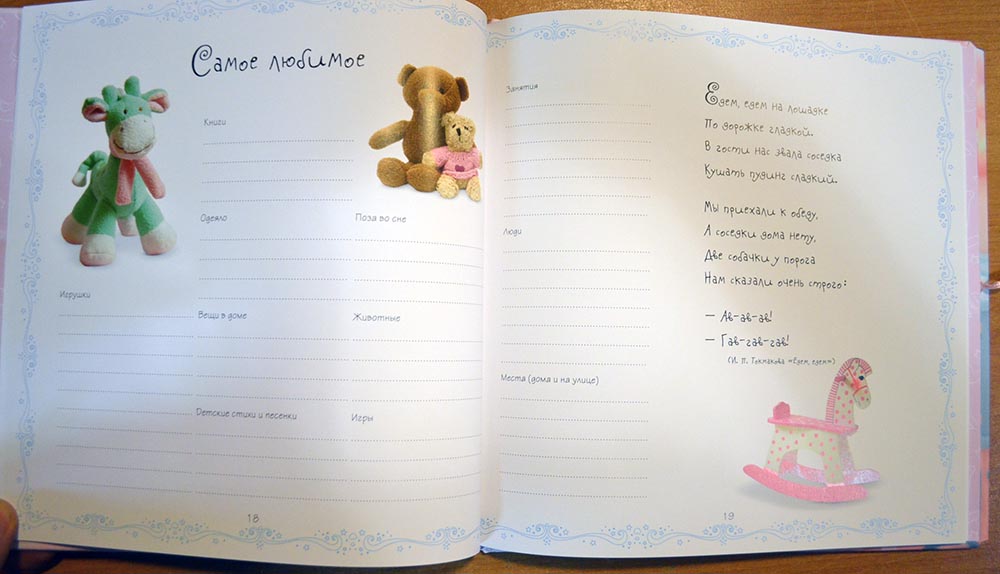 Самое любимое
Книги
Одеяло
Поза во сне
Игрушки
Вещи в доме
Животные
Детские стихи и песенки
Игры
18
Занятия
Люди
Места (дома и на улице)
Едем, едем на лошадке
По дорожке гладкой.
В гости нас звала соседка
Кушать пудинг сладкий.
Мы приехали к обеду,
А соседки дома нету,
Две собачки у порога
Нам сказали очень строго:
— Ав-ав-ав!
— Гав-гав-гав!
(И. П. Токмакова «Едем, едем»)
19